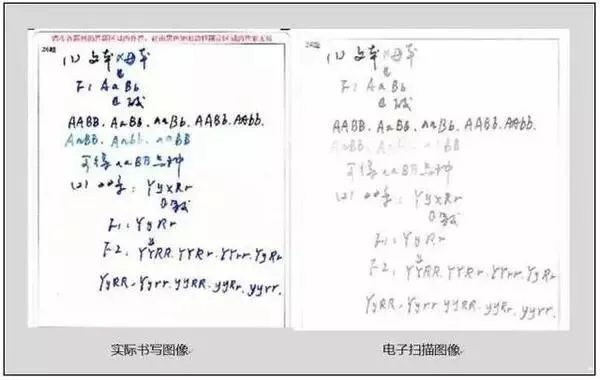 请在各题目的答题区域内作答，超出黑色矩形边框限定区域的答案无效
26题
(1) 父本×母本
F₁ AaBb
AABB. AaBB. aaBb. AABb. AAbb.
AaBB. Aabb. aaBB
可得aaBB品种
(2) YyxRr
F₁: YyRr
F2: YYRR. YYRr. YYrr. YyRr
YyRR. Yyrr. yyRR. yyRr. yyrr.
26题
(1) 父本×母本
F₁ AaBb
AABB. AaBB. aaBb. AABb. AAbb.
AaBB. Aabb. aaBB
可得aaBB品种
(2) YyxRr
F₁: YyRr
F2: YYRR. YYRr. YYrr. YyRr
YyRR. Yyrr. yyRR. yyRr. yyrr.
实际书写图像
电子扫描图像